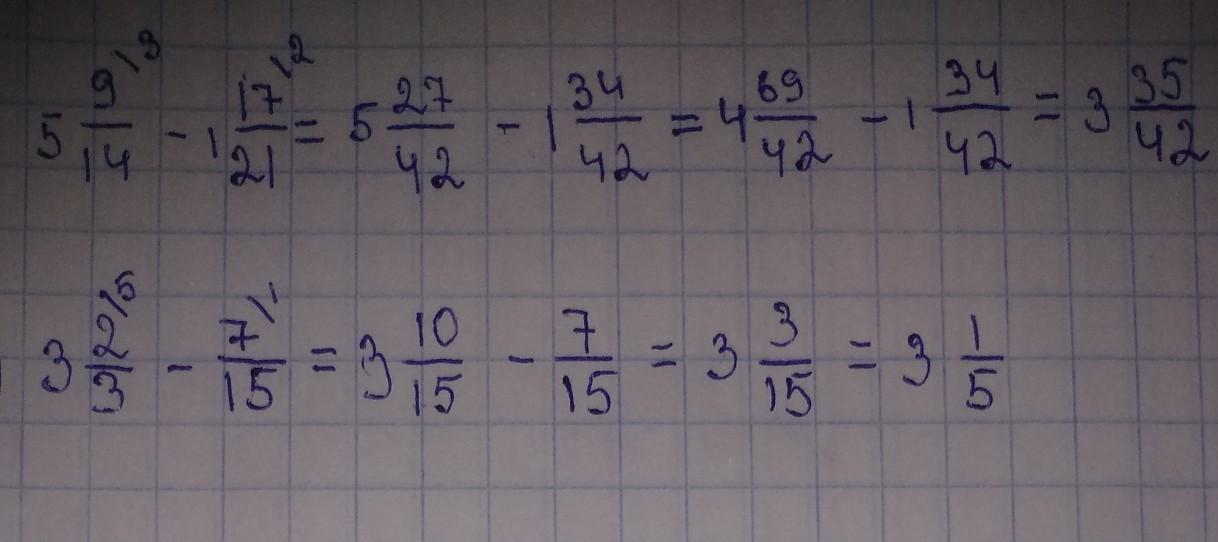 5 9/14 \3 - 1 17/21 \2 = 5 27/42 - 1 34/42 = 4 69/42 - 1 34/42 = 3 35/42
3 2/3 \5 - 7/15 \1 = 3 10/15 - 7/15 = 3 3/15 = 3 1/5